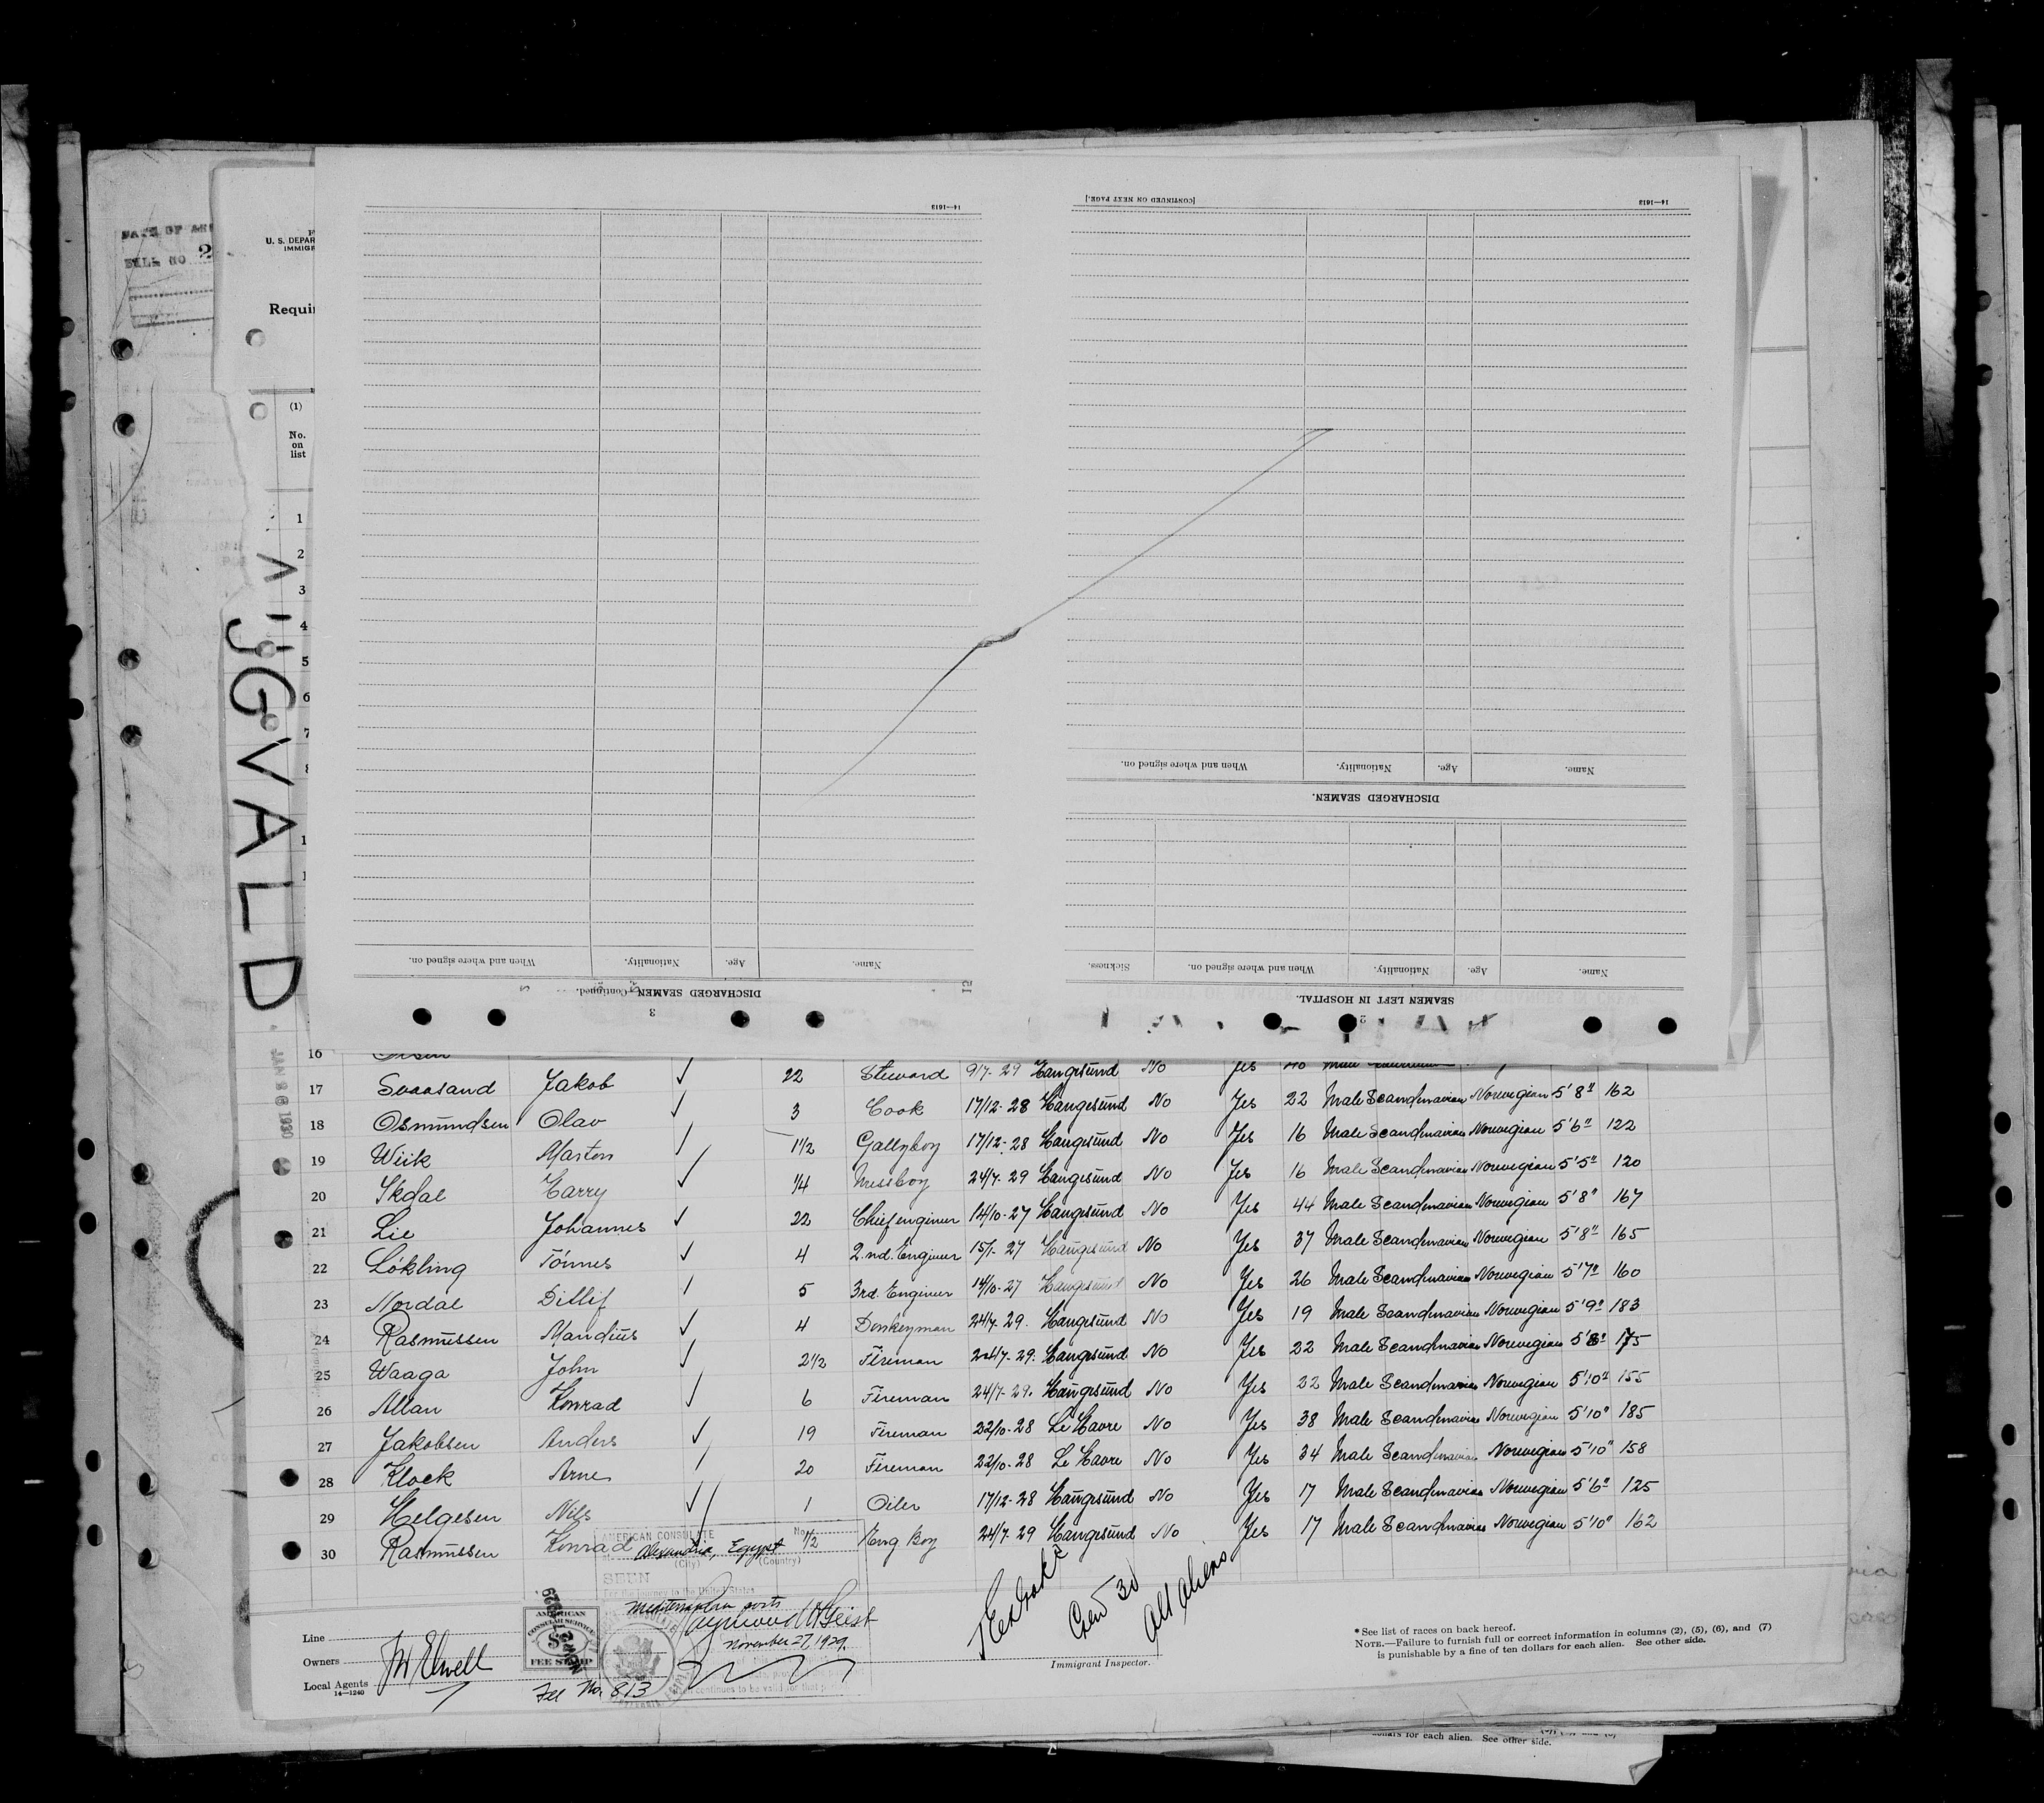 DATE OF
BILL NO 2
U. S. DEPAR
IMMIGR
Requir
(1)
No.
on
list
1
2
3
4
5
6
7
8
1
1
VALD
JAN 1930
14—1613
[CONTINUED ON NEXT PAGE.]
14—1613
When and where signed on. Nationality. Age. Name.
DISCHARGED SEAMEN.
When and where signed on. Nationality. Age. Name.
DISCHARGED SEAMEN—Continued.
3
Sickness. When and where signed on. Nationality. Age. Name.
SEAMEN LEFT IN HOSPITAL.
2
16 Olsen
17 Svaasand Jakob 22 Steward 9/7-29 Haugesund No Yes
18 Osmundsen Olav 3 Cook 17/12-28 Haugesund No Yes 22 Male Scandinavian Norwegian 5'8" 162
19 Wiik Marton 1 1/2 Gallyboy 17/12-28 Haugesund No Yes 16 Male Scandinavian Norwegian 5'6" 122
20 Harry 1/4 Messboy 24/7-29 Haugesund No Yes 16 Male Scandinavian Norwegian 5'5" 120
21 Lie Johannes 22 Chief enginer 14/10-27 Haugesund No Yes 44 Male Scandinavian Norwegian 5'8" 167
22 Lökling Tönnes 4 2.nd. Enginer 15/1-27 Haugesund No Yes 37 Male Scandinavian Norwegian 5'8" 165
23 Nordal Ditlif 5 3rd. Enginer 14/10-27 Haugesund No Yes 26 Male Scandinavian Norwegian 5'7" 160
24 Rasmussen Mandius 4 Donkeyman 24/7-29. Haugesund No Yes 19 Male Scandinavian Norwegian 5'9" 183
25 Waaga John 2 1/2 Fireman 24/7-29. Haugesund No Yes 22 Male Scandinavian Norwegian 175
26 Allan Konrad 6 Fireman 24/7-29. Haugesund No Yes 22 Male Scandinavian Norwegian 5'10" 155
27 Jakobsen Anders 19 Fireman 22/10-28 Le Havre No Yes 38 Male Scandinavian Norwegian 5'10" 185
28 Klock Arne 20 Fireman 22/10-28 Le Havre No Yes 34 Male Scandinavian Norwegian 5'10" 158
29 Helgesen Nils 1 Oiler 17/12-28 Haugesund No Yes 17 Male Scandinavian Norwegian 5'6" 125
30 Rasmussen Konrad 1/2 Eng Boy 24/7-29 Haugesund No Yes 17 Male Scandinavian Norwegian 5'10" 162
AMERICAN CONSULATE No.
Alexandria, Egypt
(City) (Country)
SEEN
For the journey to the United States
Mediterranean ports
Raymond H Geist
November 27, 1929.
continues to be valid for that
AMERICAN
CONSULAR SERVICE
FEE STAMP
NOV 27 1929
Fee No. 813
Line
Owners
Local Agents
14—1240
All aliens
Immigrant Inspector.
* See list of races on back hereof.
NOTE.—Failure to furnish full or correct information in columns (2), (5), (6), and (7)
is punishable by a fine of ten dollars for each alien. See other side.
for each alien. See other side.